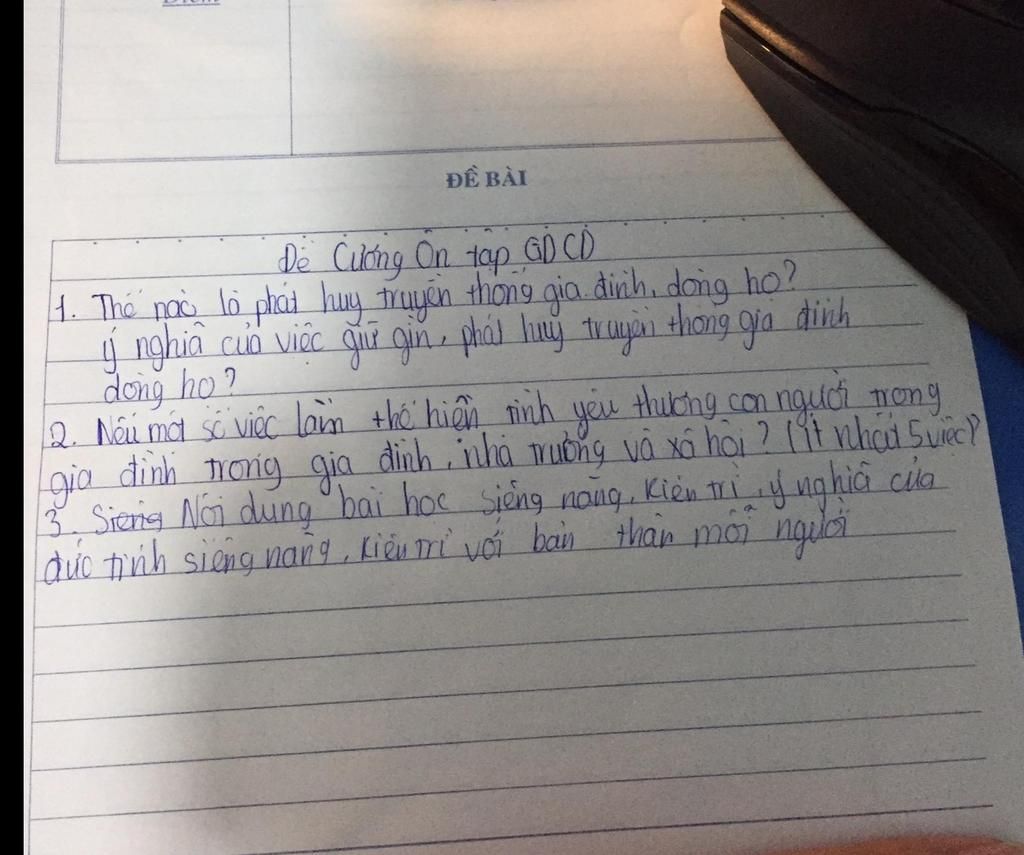 ĐỀ BÀI
Đề Cương Ôn tập GDCD
1. Thế nào là phát huy truyền thống gia đình, dòng họ?
ý nghĩa của việc giữ gìn, phát huy truyền thống gia đình
dòng họ?
2. Nêu một số việc làm thể hiện tình yêu thương con người trong
gia đình trong gia đình, nhà trường và xã hội? (ít nhất 5 việc)?
3. Siêng Nội dung bài học siêng năng, kiên trì, ý nghĩa của
đức tính siêng năng, kiên trì với bản thân mỗi người